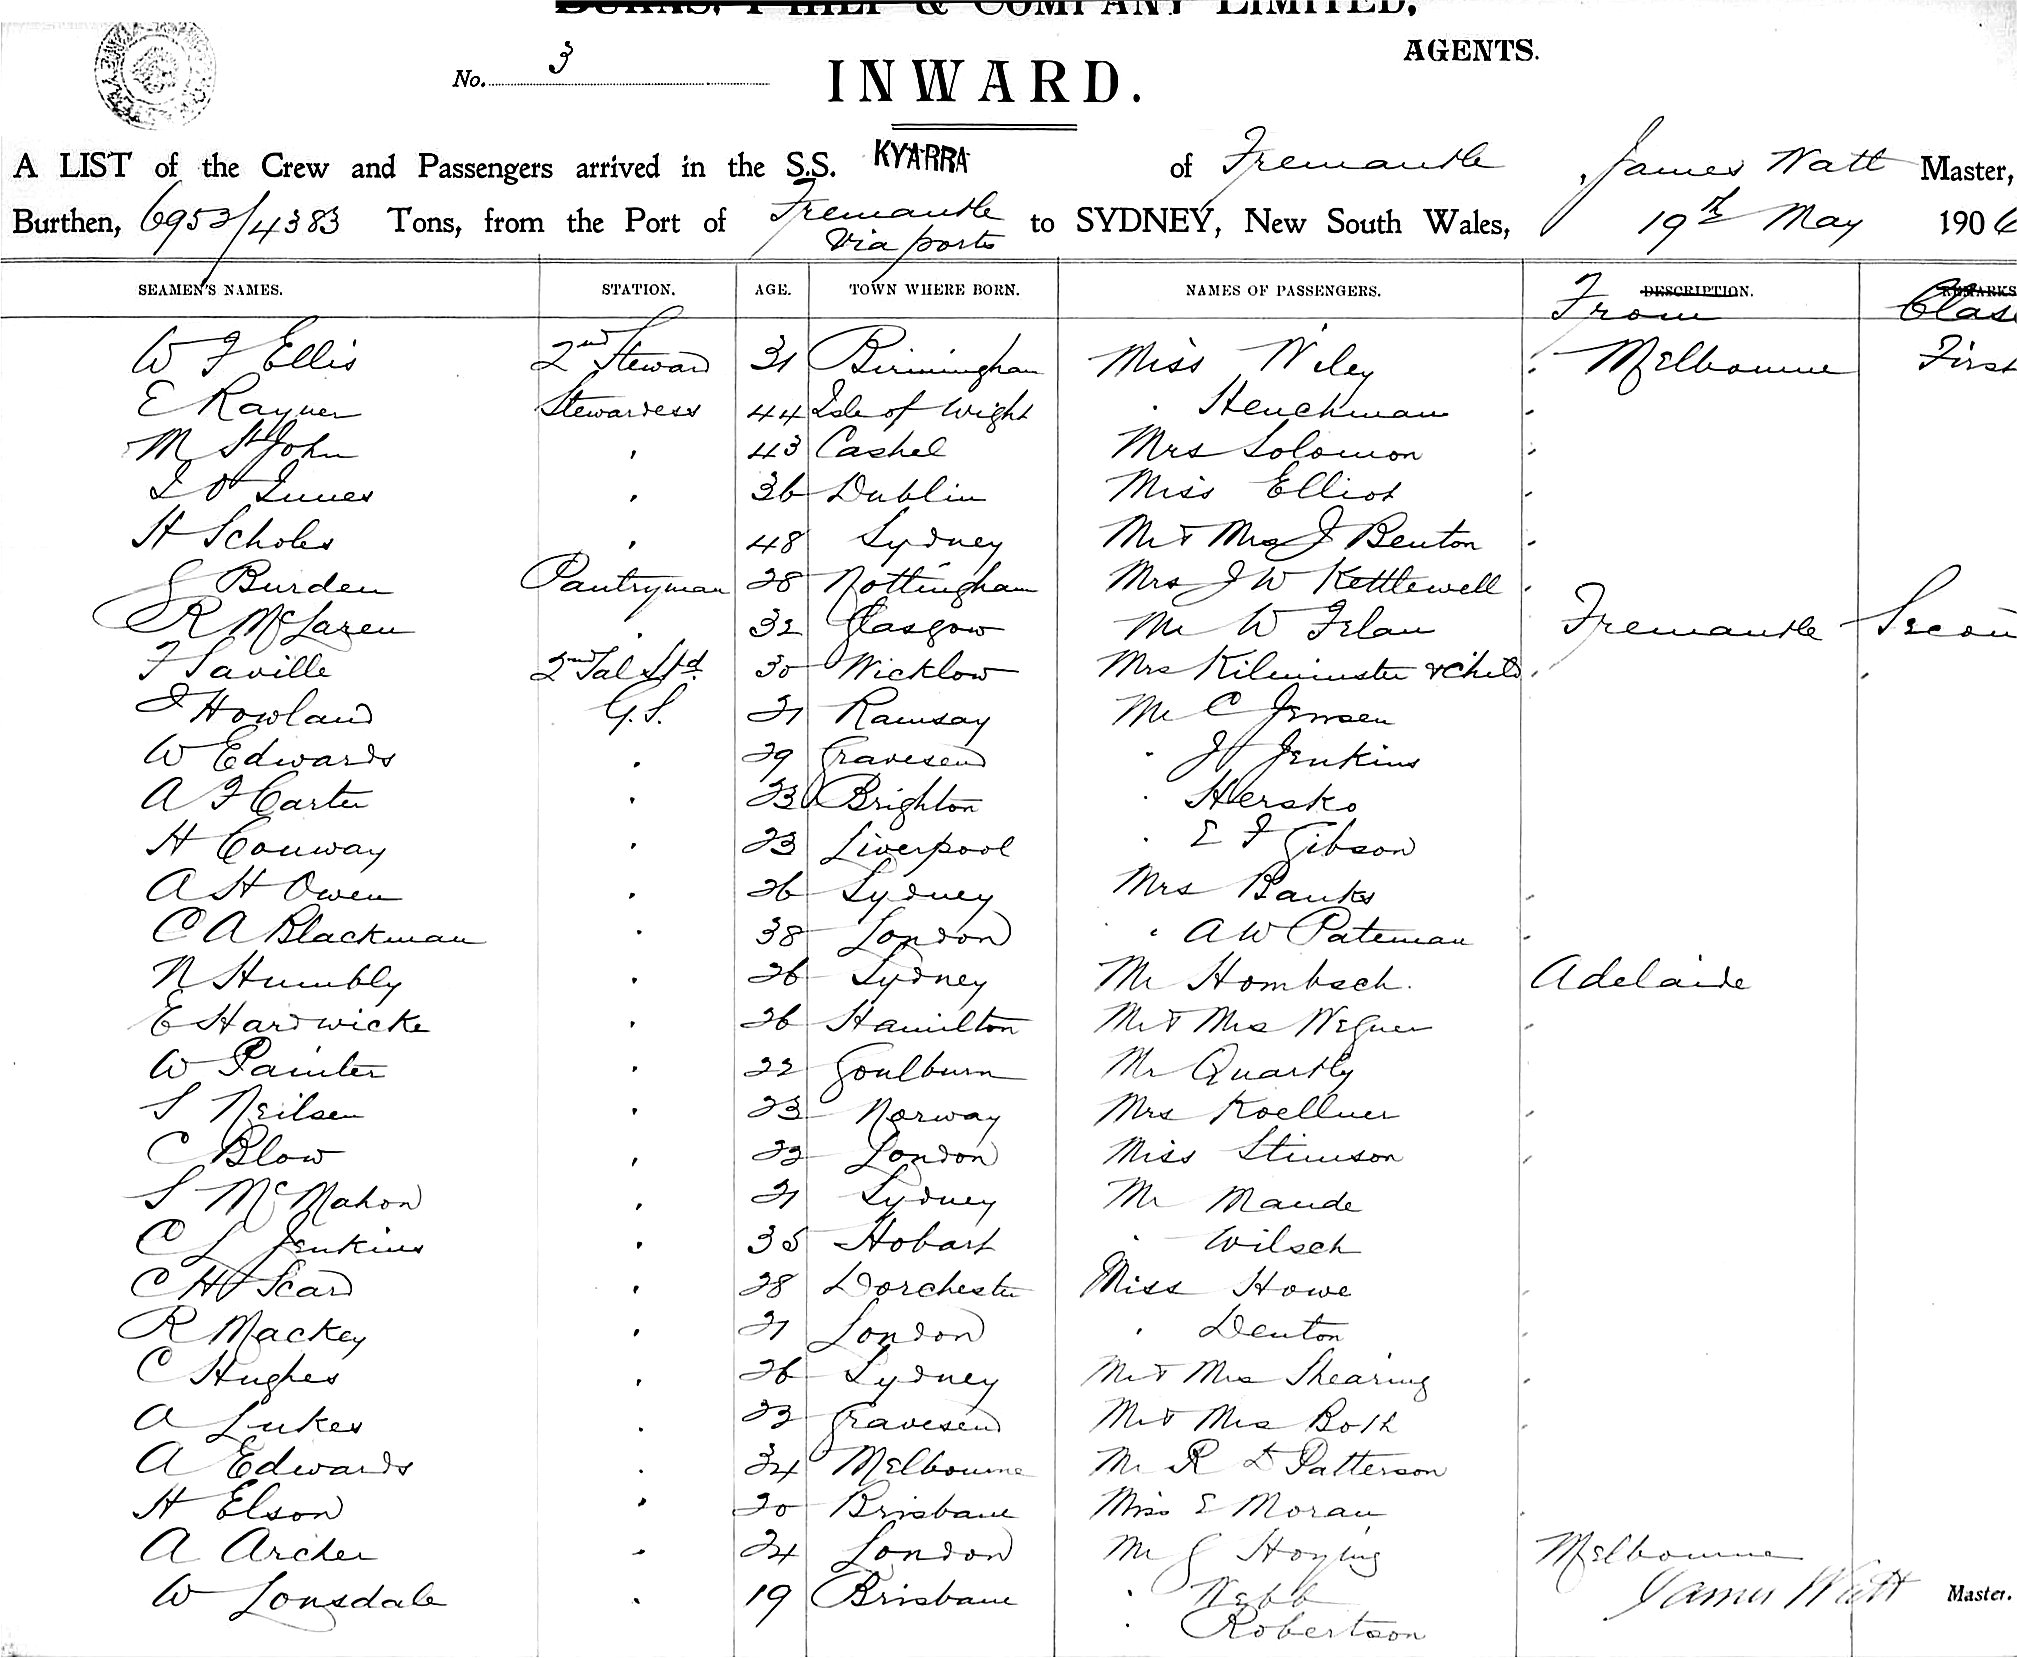 BURNS, PHILP & COMPANY LIMITED,
AGENTS.
No. 3
INWARD.
A LIST of the Crew and Passengers arrived in the S.S. KYARRA of Fremantle, James Watt Master,
Burthen, 6953/4383 Tons, from the Port of Fremantle via ports to SYDNEY, New South Wales, 19th May 1906
SEAMEN'S NAMES. STATION. AGE. TOWN WHERE BORN. NAMES OF PASSENGERS. DESCRIPTION. REMARKS
From Clas
W F Ellis 2nd Steward 31 Birmingham Miss Wiley Melbourne First
E Rayner Stewardess 44 Isle of Wight " Henchman "
M St John " 43 Cashel Mrs Solomon "
I O Innes " 36 Dublin Miss Elliot "
H Scholes " 48 Sydney Mr & Mrs J Benton "
J Burden Pantryman 28 Nottingham Mrs J W Kettlewell "
R McLaren " 32 Glasgow Mr W Filan Fremantle Secon
F Saville 2nd Sal Std. 30 Wicklow Mrs Kilminster & Child " "
J Howland G.S. 21 Ramsay Mr C Jensen
W Edwards " 29 Gravesend " J Jenkins
A F Carter " 23 Brighton " Hersko
H Conway " 23 Liverpool " E F Gibson
A H Owen " 26 Sydney Mrs Banks "
C A Blackman " 38 London " A W Pateman "
N Humbly " 26 Sydney Mr Hombsch. Adelaide
E Hardwicke " 26 Hamilton Mr & Mrs Wegner "
W Painter " 22 Goulburn Mr Quartly
S Neilsen " 23 Norway Mrs Koellner "
C Blow " 22 London Miss Stimson "
S McMahon " 21 Sydney Mr Maude
C L Jenkins " 35 Hobart " Wilsch
C H Scard " 28 Dorchester Miss Howe "
R Mackey " 21 London " Denton "
C Hughes " 26 Sydney Mr & Mrs Shearing "
A Lukes " 22 Gravesend Mr & Mrs Both "
A Edwards " 34 Melbourne Mr R D Patterson
H Elson " 20 Brisbane Miss E Moran "
A Archer " 24 London Mr G Hoying Melbourne
W Lonsdale " 19 Brisbane " Webb James Watt Master.
" Robertson